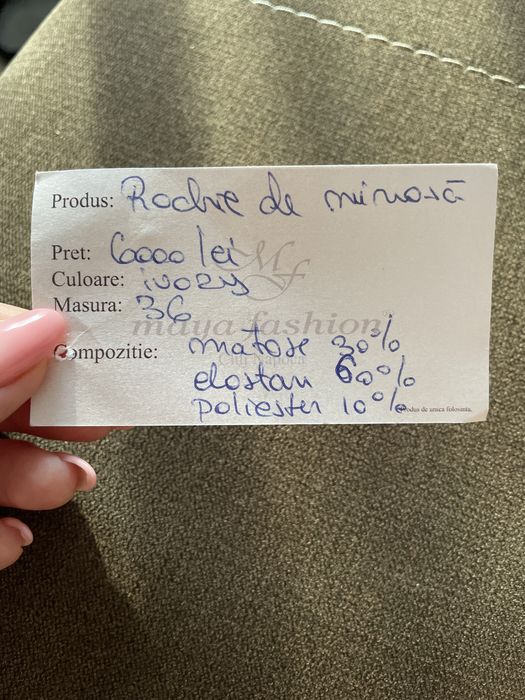 Produs: Rochie de mireasă
Pret: 6000 lei
MF
Culoare: ivory
Masura: 36
maya fashion
Cluj Napoca
Compozitie: matase 30%
elastan 60%
poliester 10%
Produs de unica folosinta.